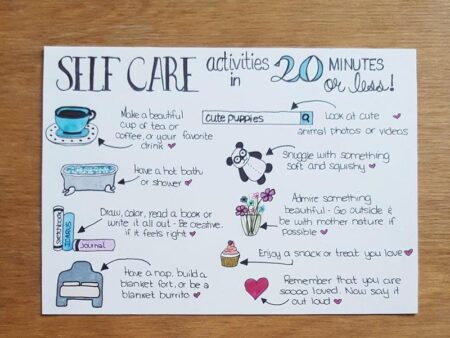 SELF CARE activities in 20 MINUTES or less!
Make a beautiful
cup of tea or
coffee, or your favorite
drink
Have a hot bath
or shower
Draw, color, read a book or
write it all out - Be creative
if it feels right
sketchbook
journal
Have a nap, build a
blanket fort, or be a
blanket burrito
cute puppies
Look at cute
animal photos or videos
Snuggle with something
soft and squishy
Admire something
beautiful - Go outside &
be with mother nature if
possible
Enjoy a snack or treat you love
Remember that you are
soooo loved. Now say it
out loud